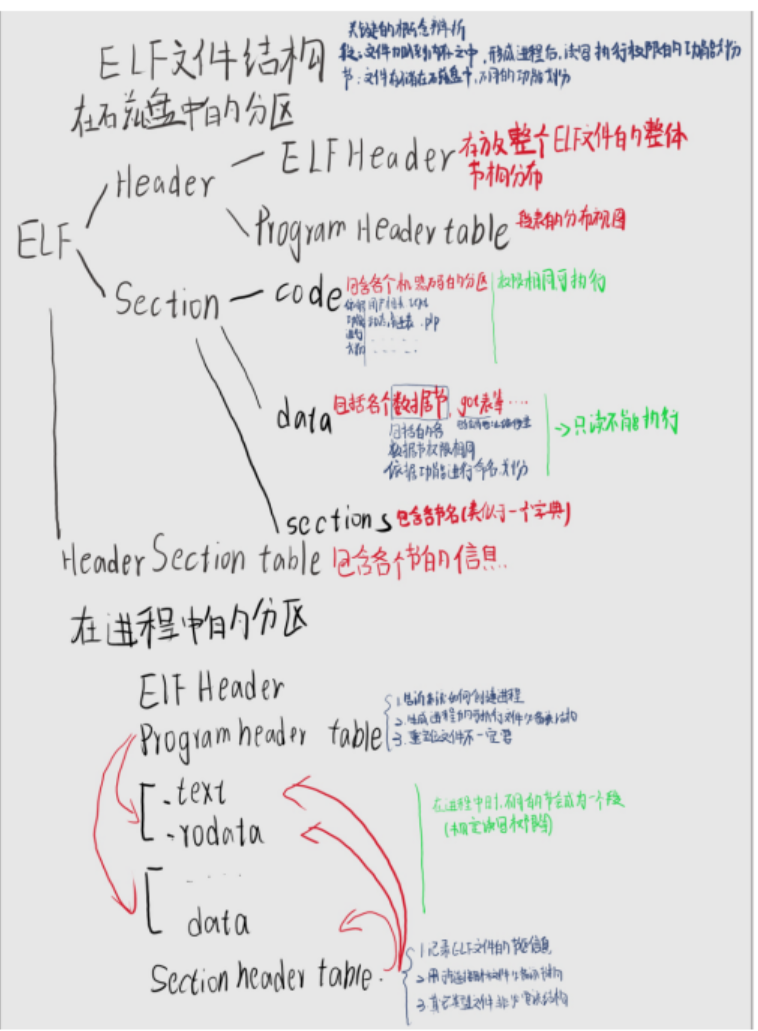 ELF文件结构
关键的概念辨析
段:文件加载到内存之中,形成进程后,读写执行权限的功能划分
节:文件存储在磁盘中,不同的功能划分
在磁盘中的分区
ELF
Header
ELF Header 存放整个ELF文件的整体
结构分布
Program Header table 段表的分布视图
Section
code 包含各个机器码的分区
权限相同可执行
用户 text
.plt
. . . . .
data 包括各个数据节,got表等....
包括的各
数据节权限相同
依据功能进行命名划分
→只读不能执行
sections 包含各节名(类似于一个字典)
Header Section table 包含各个节的信息.
在进程中的分区
ElF Header
Program header table
1.告诉系统如何创建进程
2.生成进程的可执行文件必需要结构
3.重定位文件不一定需
.text
.rodata
在进程中时,不同的节合成为一个段
(相同读写权限)
. . . .
data
Section header table.
1 记录ELF文件的节区信息
2.用
3 其它类型文件